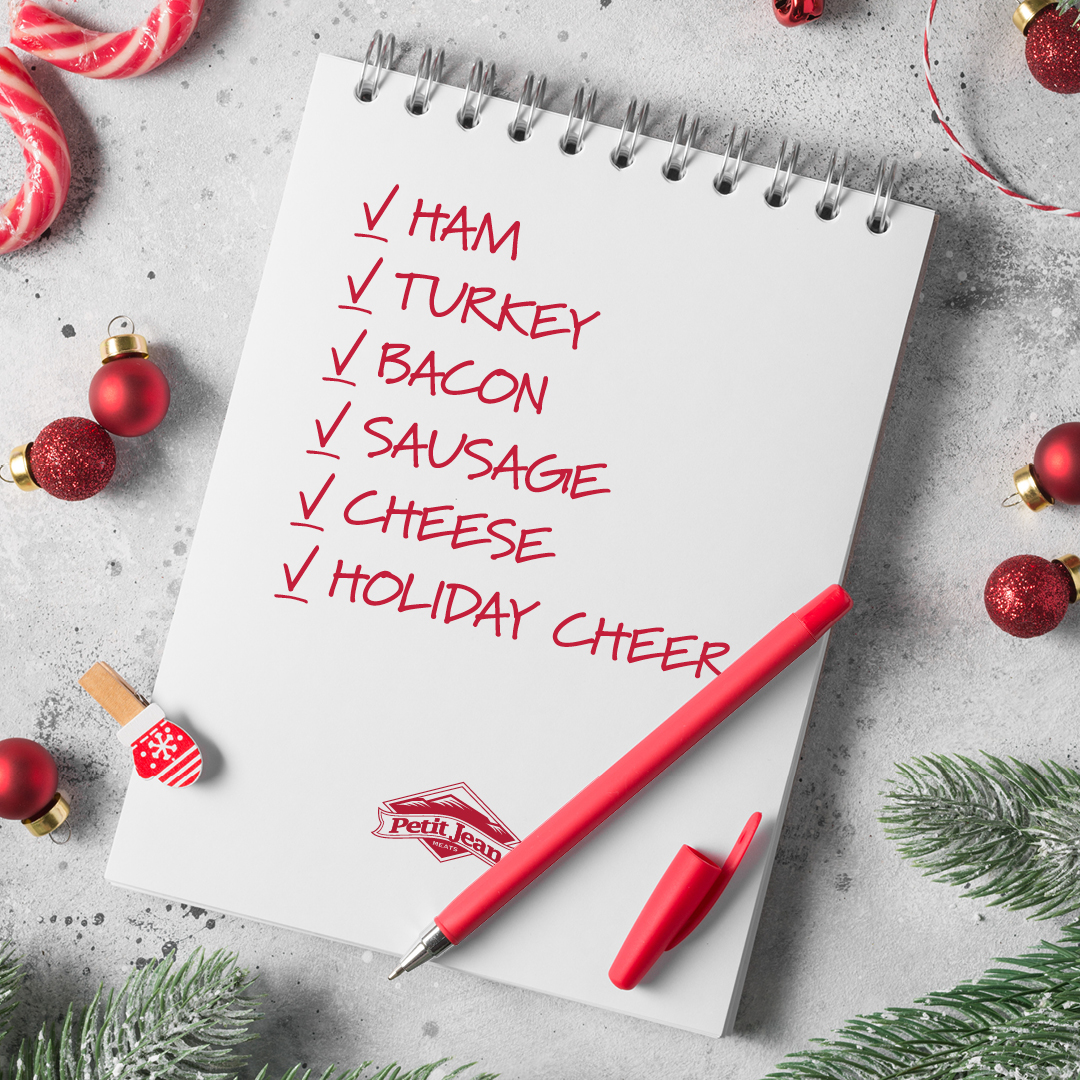 ✓ HAM
✓ TURKEY
✓ BACON
✓ SAUSAGE
✓ CHEESE
✓ HOLIDAY CHEER
Petit Jean
MEATS